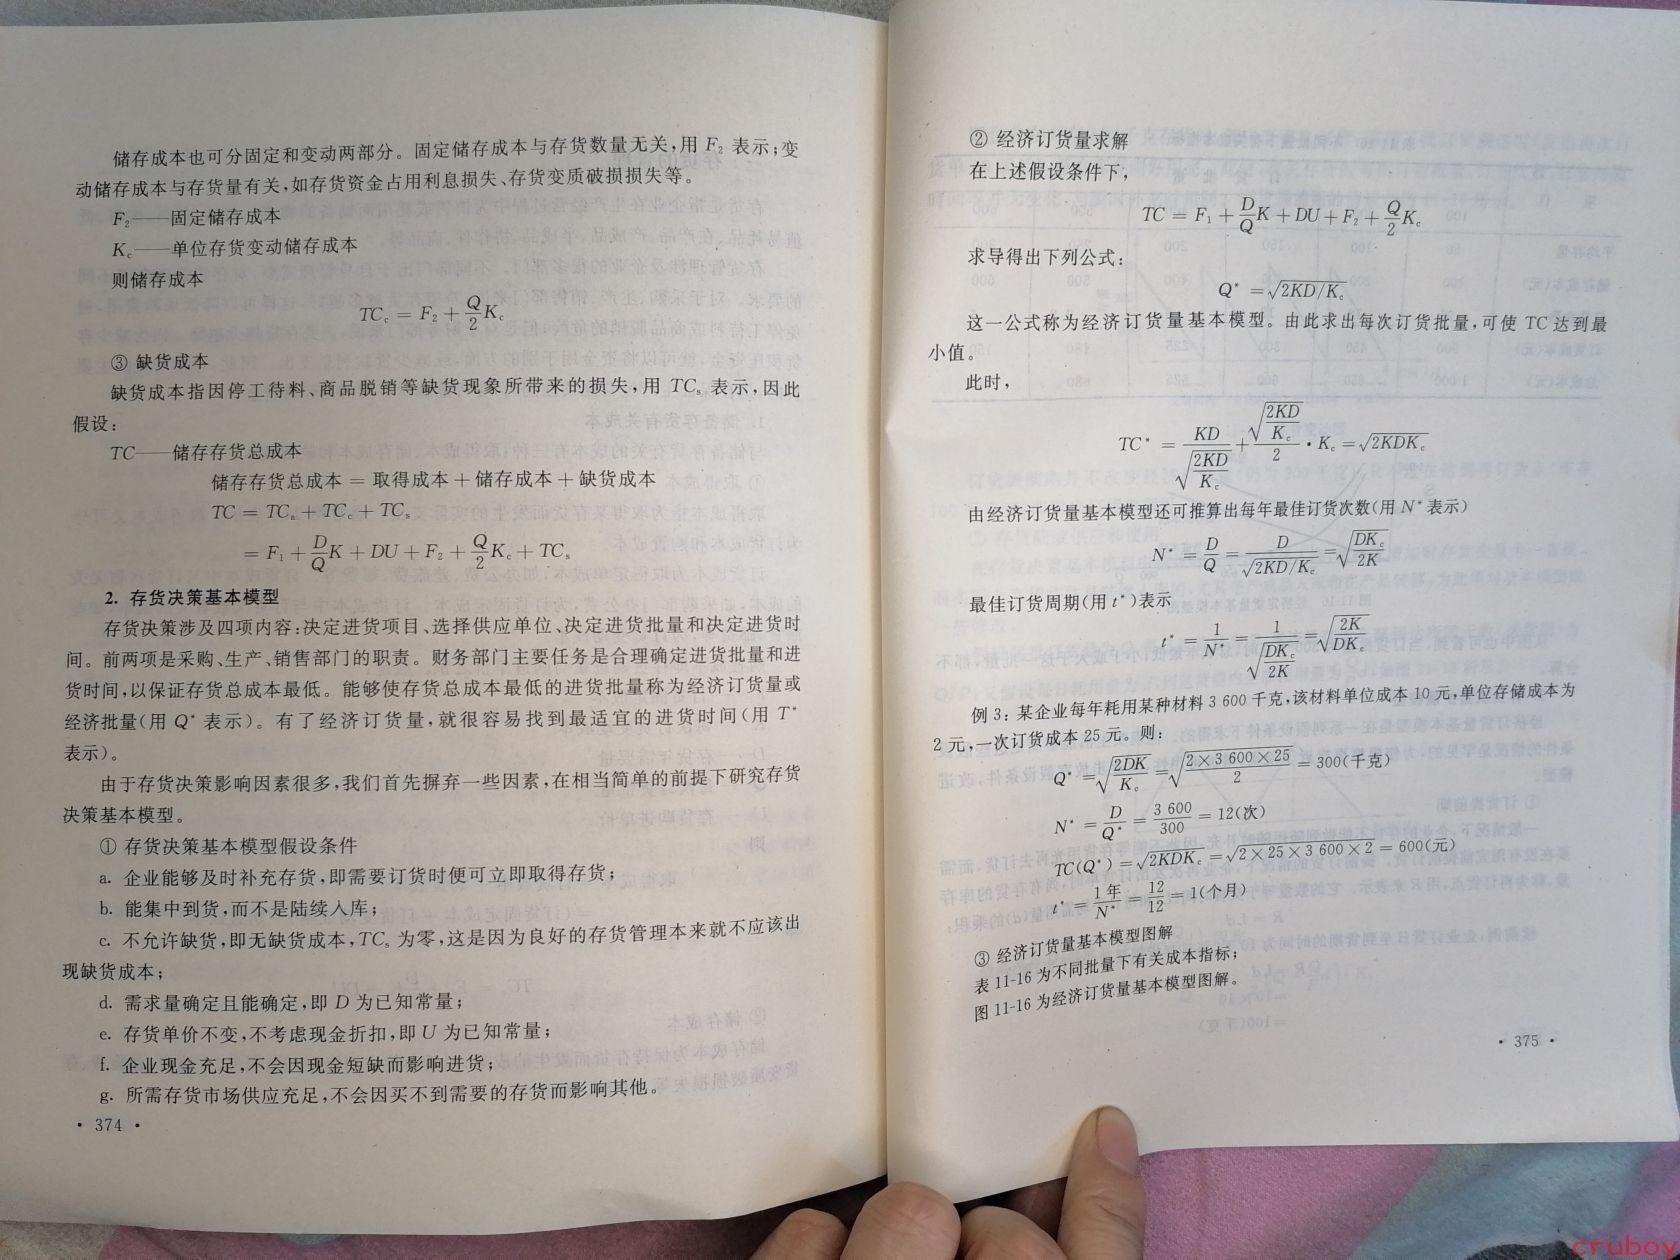 储存成本也可分固定和变动两部分。固定储存成本与存货数量无关,用 F₂ 表示;变
动储存成本与存货量有关,如存货资金占用利息损失、存货变质破损损失等。
F₂——固定储存成本
K꜀——单位存货变动储存成本
则储存成本
TC꜀ = F₂ + Q/2 K꜀
③ 缺货成本
缺货成本指因停工待料、商品脱销等缺货现象所带来的损失,用 TCₛ 表示,因此
假设:
TC——储存存货总成本
储存存货总成本 = 取得成本 + 储存成本 + 缺货成本
TC = TCₐ + TC꜀ + TCₛ
= F₁ + D/Q K + DU + F₂ + Q/2 K꜀ + TCₛ
2. 存货决策基本模型
存货决策涉及四项内容:决定进货项目、选择供应单位、决定进货批量和决定进货时
间。前两项是采购、生产、销售部门的职责。财务部门主要任务是合理确定进货批量和进
货时间,以保证存货总成本最低。能够使存货总成本最低的进货批量称为经济订货量或
经济批量(用 Q* 表示)。有了经济订货量,就很容易找到最适宜的进货时间(用 T*
表示)。
由于存货决策影响因素很多,我们首先摒弃一些因素,在相当简单的前提下研究存货
决策基本模型。
① 存货决策基本模型假设条件
a. 企业能够及时补充存货,即需要订货时便可立即取得存货;
b. 能集中到货,而不是陆续入库;
c. 不允许缺货,即无缺货成本,TCₛ 为零,这是因为良好的存货管理本来就不应该出
现缺货成本;
d. 需求量确定且能确定,即 D 为已知常量;
e. 存货单价不变,不考虑现金折扣,即 U 为已知常量;
f. 企业现金充足,不会因现金短缺而影响进货;
g. 所需存货市场供应充足,不会因买不到需要的存货而影响其他。
· 374 ·
② 经济订货量求解
在上述假设条件下,
TC = F₁ + D/Q K + DU + F₂ + Q/2 K꜀
求导得出下列公式:
Q* = √(2KD/K꜀)
这一公式称为经济订货量基本模型。由此求出每次订货批量,可使 TC 达到最
小值。
此时,
TC* = KD/√(2KD/K꜀) + √(2KD/K꜀)/2 · K꜀ = √(2KDK꜀)
由经济订货量基本模型还可推算出每年最佳订货次数(用 N* 表示)
N* = D/Q = D/√(2KD/K꜀) = √(DK꜀/2K)
最佳订货周期(用 t*)表示
t* = 1/N* = 1/√(DK꜀/2K) = √(2K/DK꜀)
例 3: 某企业每年耗用某种材料 3 600 千克,该材料单位成本 10 元,单位存储成本为
2 元,一次订货成本 25 元。则:
Q* = √(2DK/K꜀) = √(2×3 600×25/2) = 300(千克)
N* = D/Q* = 3 600/300 = 12(次)
TC(Q*) = √(2KDK꜀) = √(2×25×3 600×2) = 600(元)
t* = 1年/N* = 12/12 = 1(个月)
③ 经济订货量基本模型图解
表 11-16 为不同批量下有关成本指标;
图 11-16 为经济订货量基本模型图解。
· 375 ·
cruboy